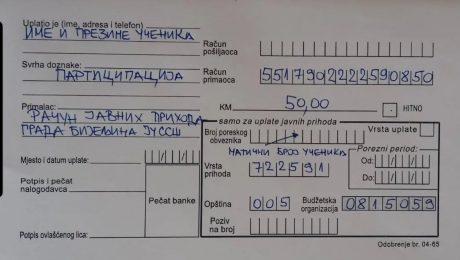 Uplatio je (ime, adresa i telefon)
ИМЕ И ПРЕЗИМЕ УЧЕНИКА
Račun pošiljaoca
Svrha doznake:
ПАРТИЦИПАЦИЈА
Račun primaoca
5517902222590850
Primalac:
РАЧУН ЈАВНИХ ПРИХОДА
ГРАДА БИЈЕЉИНА ЈУССШ
KM
50,00
HITNO
samo za uplate javnih prihoda
Broj poreskog obveznika
Vrsta uplate
МАТИЧНИ БРОЈ УЧЕНИКА
Poreski period:
Mjesto i datum uplate:
Vrsta prihoda
722591
Od:
Do:
Potpis i pečat nalogodavca
Pečat banke
Opština
005
Budžetska organizacija
0815059
Poziv na broj
Potpis ovlašćenog lica:
Odobrenje br. 04-65